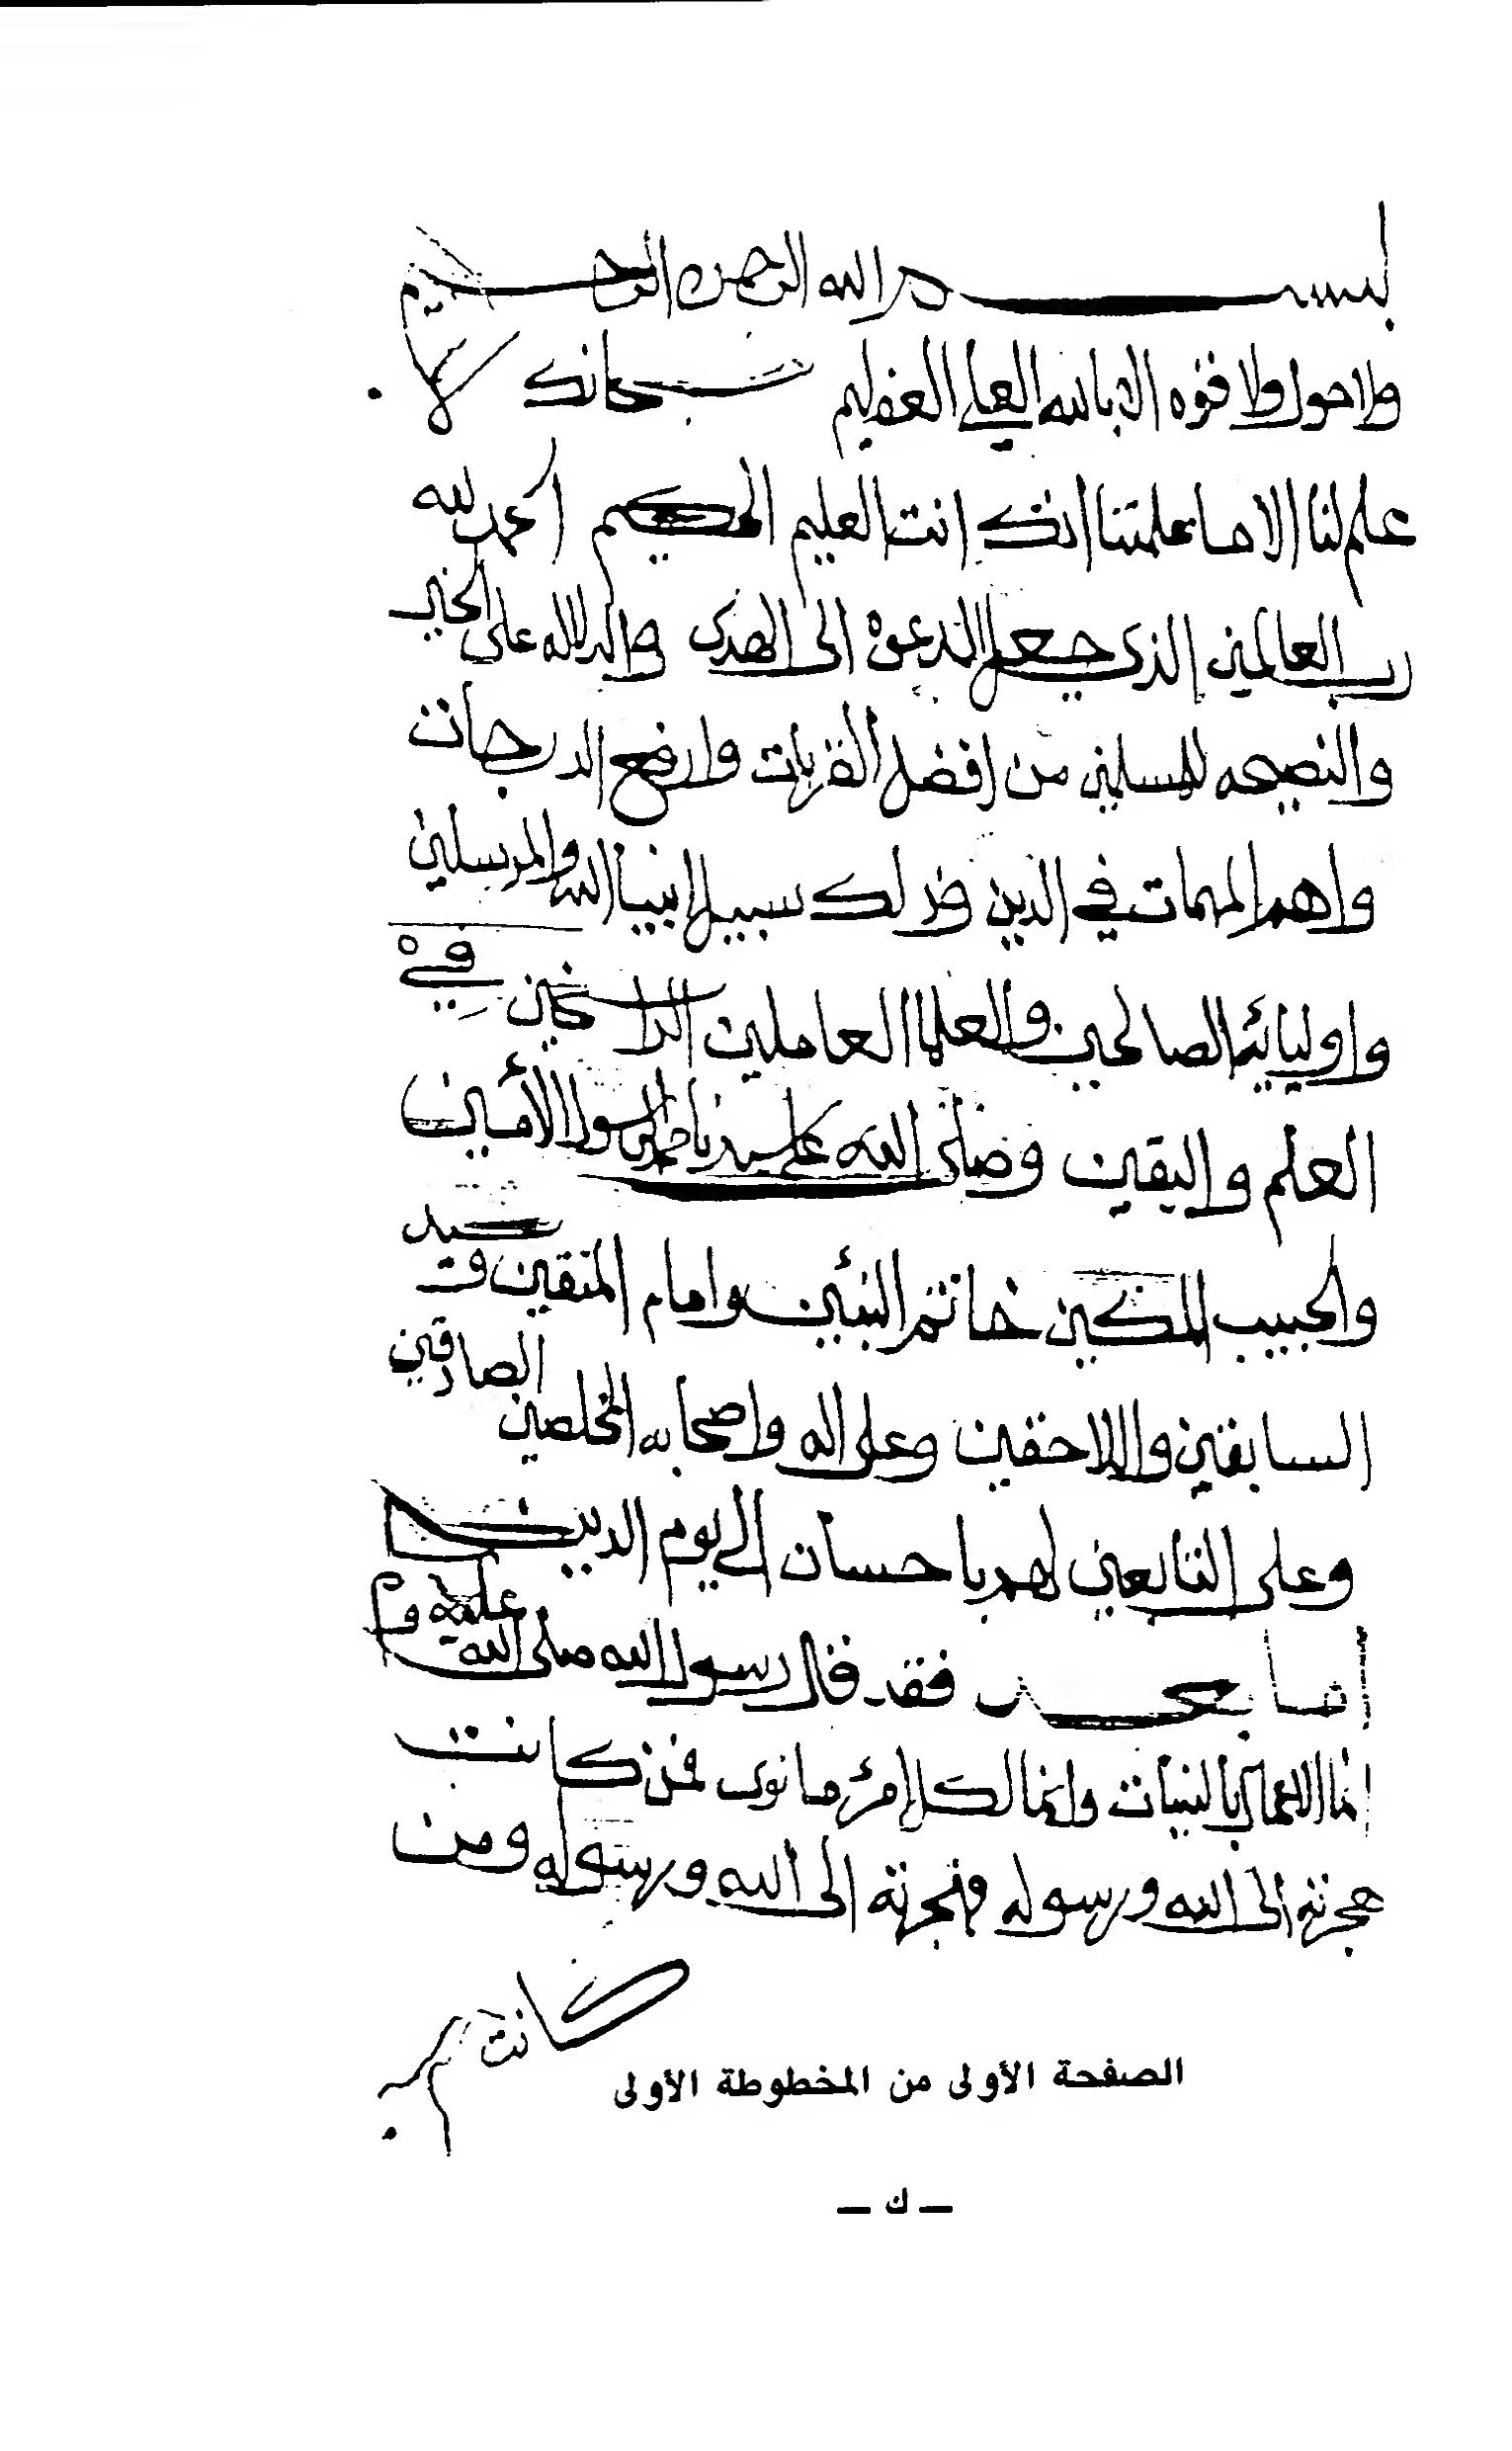 بسم الله الرحمن الرحيم
ولا حول ولا قوه الا بالله العلي العظيم سبحانك لا
علم لنا الا ما علمتنا انك انت العليم الحكيم الحمد لله
رب العالمين الذي جعل الدعوه الى الهدى والدلاله على الخير
والنصيحه للمسلمين من افضل القربات وارفع الدرجات
واهم المهمات في الدين وذلك سبيل انبيا الله والمرسلين
واوليائه الصالحين والعلما العاملين الراسخين في
العلم واليقين وصلى الله على سيدنا محمد الرسول الأمين
والحبيب المكين خاتم النبئين وامام المتقين وسيد
السابقين واللاحقين وعلى اله واصحابه المخلصين الصادقين
وعلى التابعين لهم باحسان الى يوم الدين
اما بعد فقد قال رسول الله صلى الله عليه وم
انما الاعمال بالنيات وانما لكل امرئ ما نوى فمن كانت
هجرته الى الله ورسوله فهجرته الى الله ورسوله ومن
كانت
الصفحة الأولى من المخطوطة الأولى
— ك —